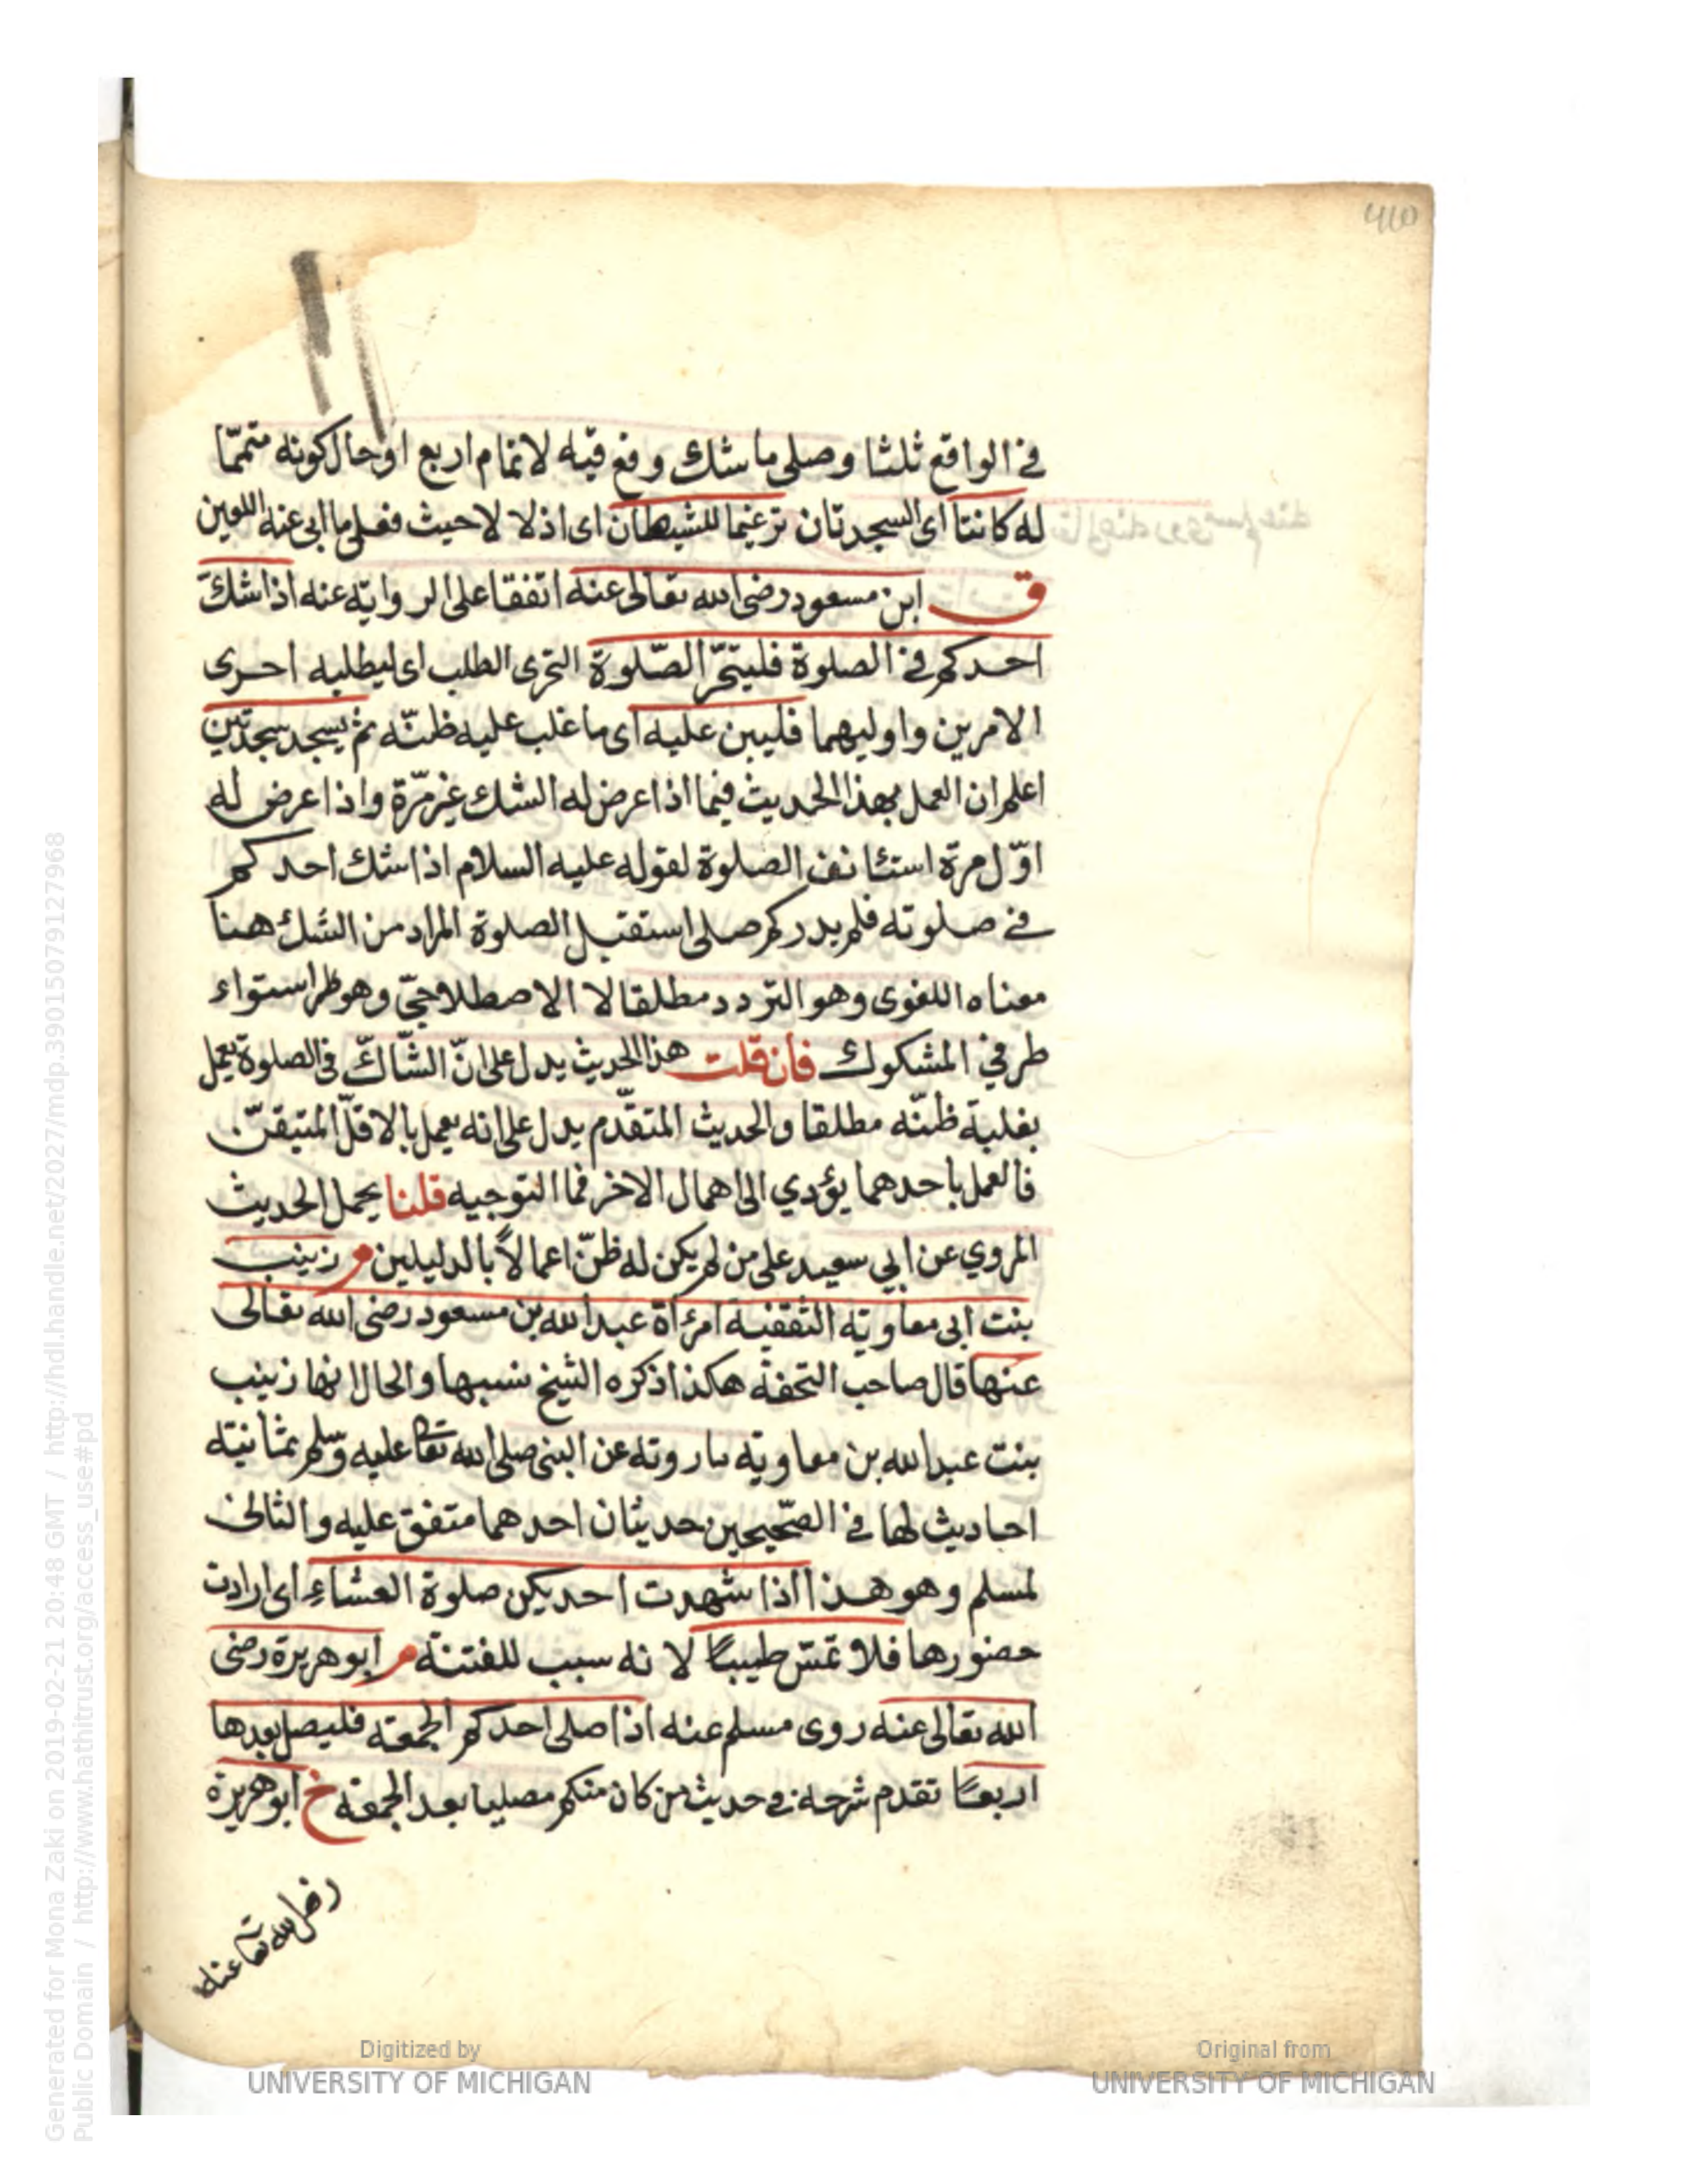 460
في الواقع ثلثا وصلى ما شك وقع فيه لاتمام اربع او حال كونه متمّما
له كانتا اى السجدتان ترغيما للشيطان اى اذلالا حيث فعل ما ابى عنه اللعين
ق ابن مسعود رضى الله تعالى عنه اتفقا على الرواية عنه اذا شكّ
احدكم في الصلوة فليتحرّ الصّلوة التحرى الطلب اى ليطلبه احرى
الامرين واوليهما فليبن عليه اى ما غلب عليه ظنّه ثم يسجد سجدتين
اعلم ان العمل بهذا الحديث فيما اذا عرض له الشك غير مرّة واذا عرض له
اوّل مرّة استئانف الصلوة لقوله عليه السلام اذا شك احدكم
في صلوته فلم يدر كم صلى استقبل الصلوة المراد من الشك هنا
معناه اللغوى وهو التردد مطلقا لا الاصطلاحيّ وهو استواء
طرفي المشكوك فان قلت هذا الحديث يدل على انّ الشّاكّ في الصلوة يعمل
بغلبة ظنّه مطلقا والحديث المتقدّم يدل على انه يعمل بالاقلّ المتيقنّ
فالعمل باحدهما يؤدي الى اهمال الاخر فما التوجيه قلنا يحمل الحديث
المروي عن ابي سعيد على من لم يكن له ظنّ اعمالاً بالدليلين م زينب
بنت ابى معاوية الثقفية امرأة عبد الله بن مسعود رضى الله تعالى
عنها قال صاحب التحفة هكذا ذكره الشيخ نسبها والحال انها زينب
بنت عبد الله بن معاوية ما روته عن النبى صلى الله تعا عليه وسلم ثمانية
احاديث لها في الصّحيحين حديثان احدهما متفق عليه والثانى
لمسلم وهو هذا اذا شهدت احديكن صلوة العشاء اى ارادت
حضورها فلا تمسّ طيبًا لانه سبب للفتنة م ابو هريرة رضى
الله تعالى عنه روى مسلم عنه اذا صلى احدكم الجمعة فليصل بعدها
اربعًا تقدم شرحه في حديث من كان منكم مصليا بعد الجمعة خ ابو هريرة
رضى الله تعا عنه
Generated for Mona Zaki on 2019-02-21 20:48 GMT / http://hdl.handle.net/2027/mdp.39015079127968
Public Domain / http://www.hathitrust.org/access_use#pd
Digitized by
UNIVERSITY OF MICHIGAN
Original from
UNIVERSITY OF MICHIGAN